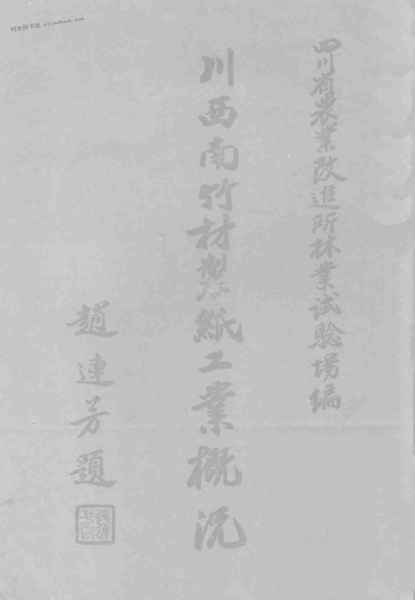 四川省農業改進所林業試驗場編
川西南竹材製紙工業概況
趙連芳題